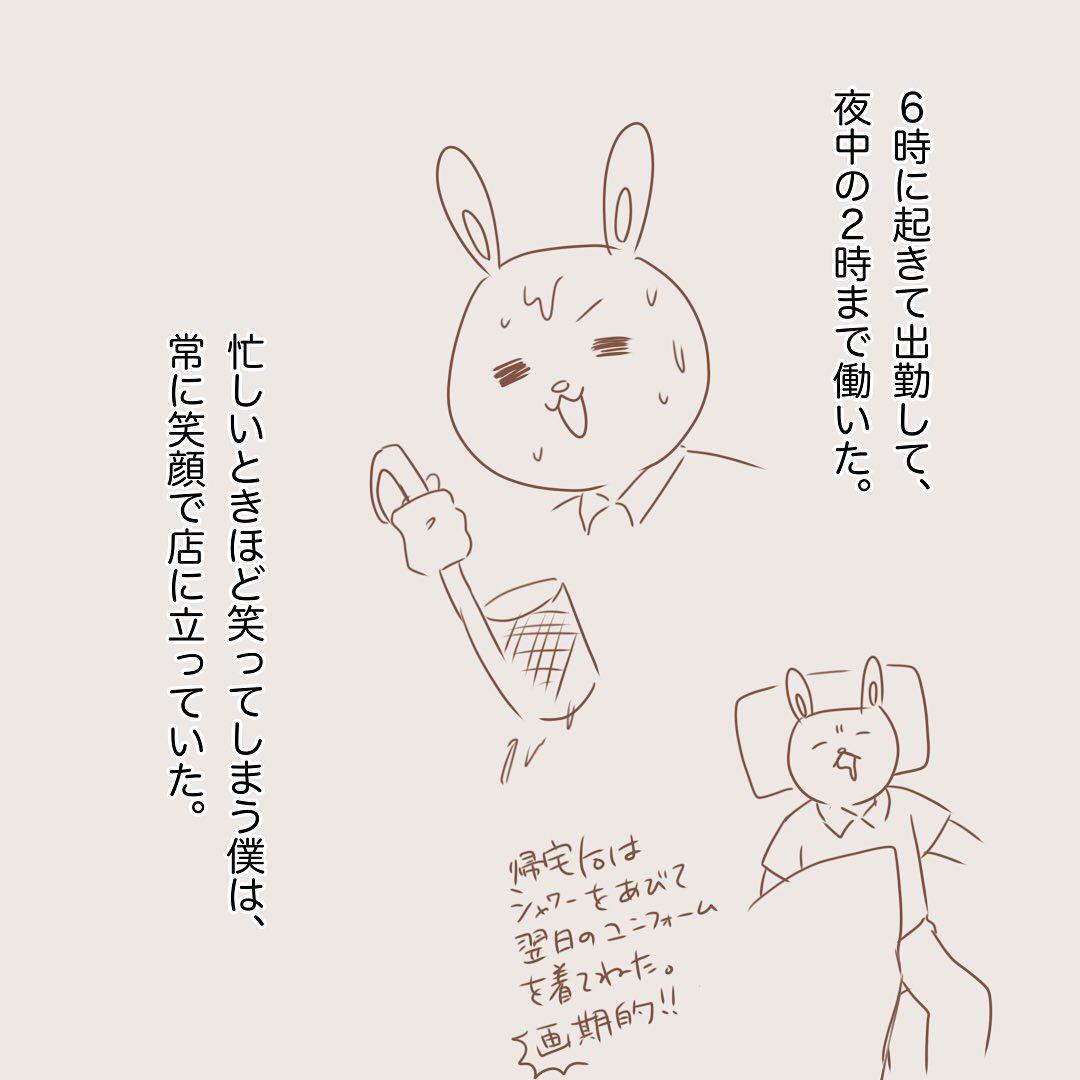 6時に起きて出勤して、
夜中の2時まで働いた。
忙しいときほど笑ってしまう僕は、
常に笑顔で店に立っていた。
帰宅后は
シャワーをあびて
翌日のユニフォーム
を着てねた。
画期的!!